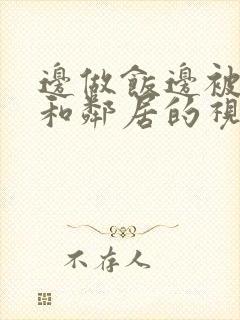 邊做飯邊被
和鄰居的視
不存人